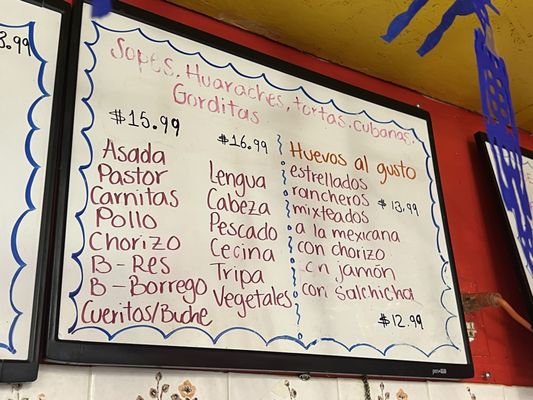 Sopes, Huaraches, tortas, cubanas,
Gorditas
$15.99
Asada
Pastor
Carnitas
Pollo
Chorizo
B-Res
B-Borrego
Cueritos/Buche
$16.99
Lengua
Cabeza
Pescado
Cecina
Tripa
Vegetales
Huevos al gusto
estrellados
rancheros $13.99
mixteados
a la mexicana
con chorizo
con jamón
con salchicha
$12.99